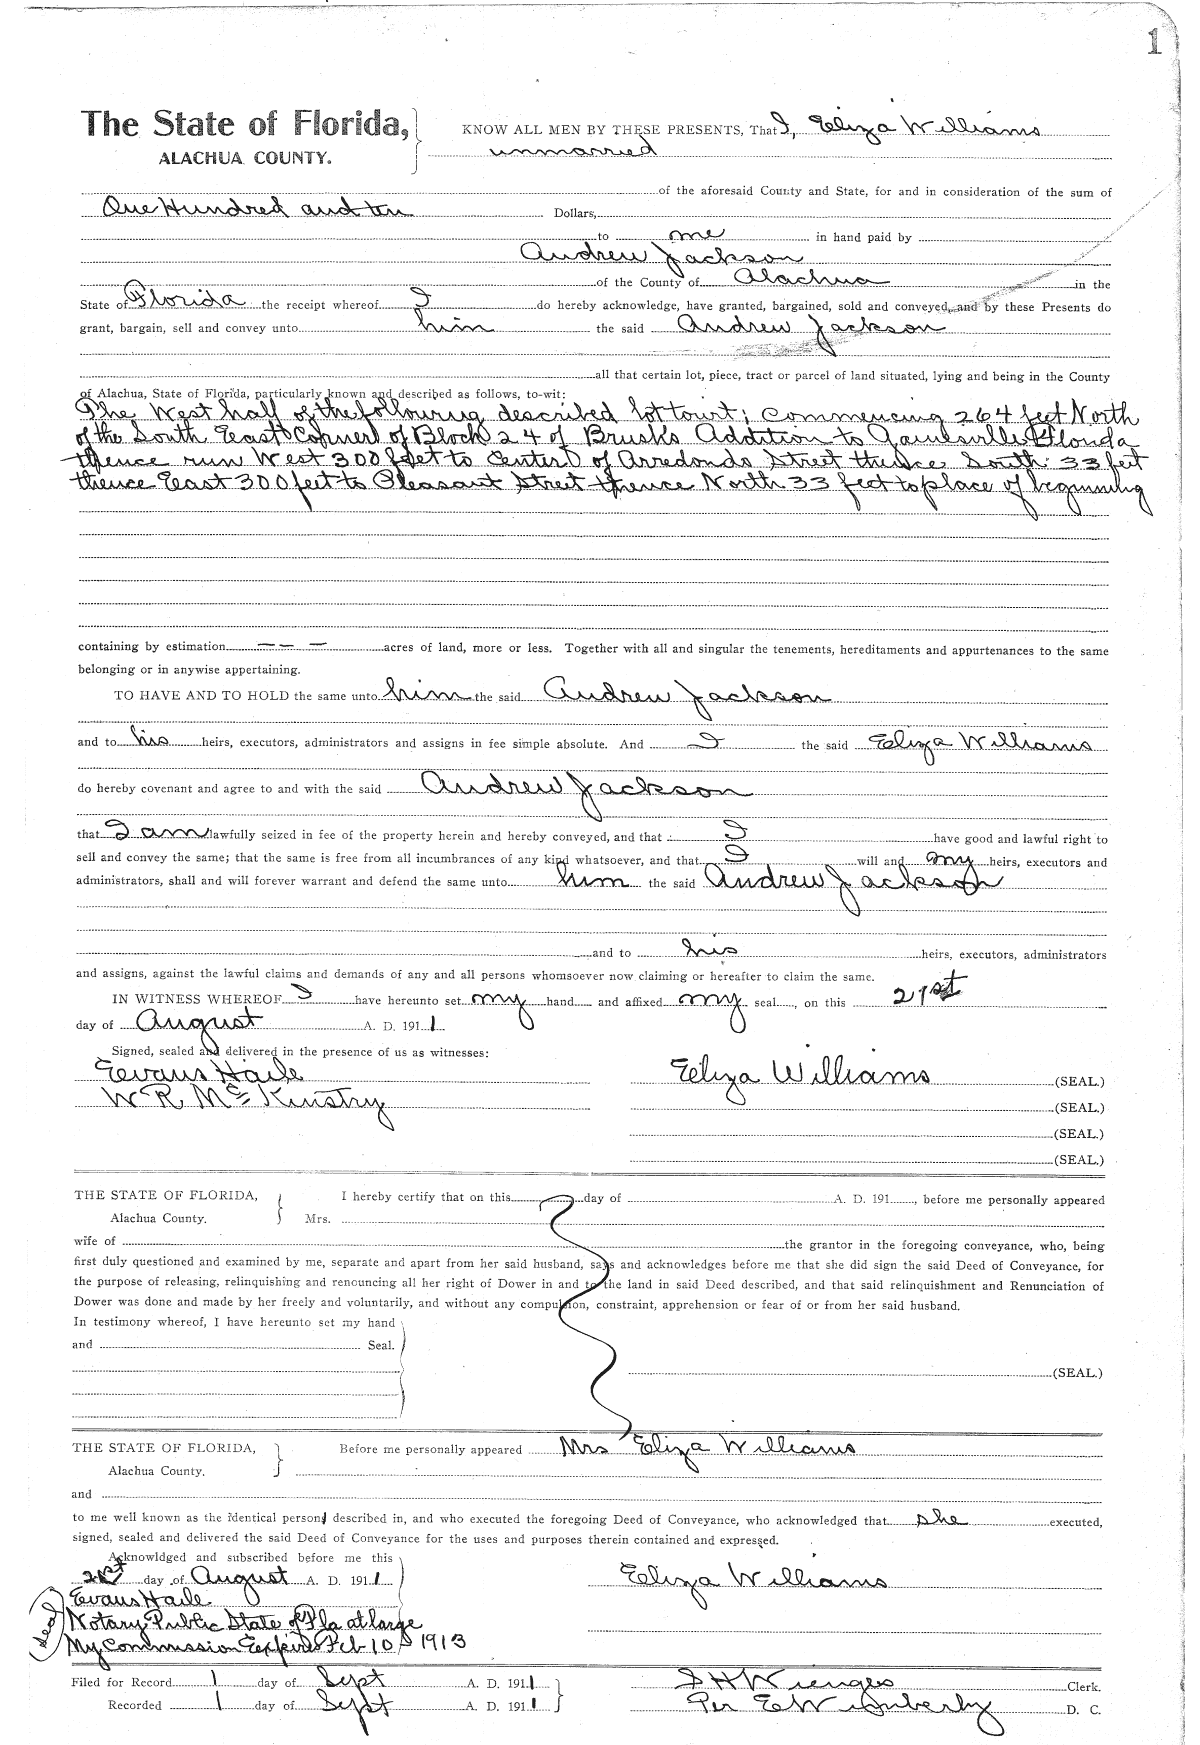 1
The State of Florida, KNOW ALL MEN BY THESE PRESENTS, That I, Eliza Williams
ALACHUA COUNTY. unmarried
of the aforesaid County and State, for and in consideration of the sum of
One Hundred and ten Dollars,
to me in hand paid by
Andrew Jackson
of the County of Alachua in the
State of Florida the receipt whereof I do hereby acknowledge, have granted, bargained, sold and conveyed, and by these Presents do
grant, bargain, sell and convey unto him the said Andrew Jackson
all that certain lot, piece, tract or parcel of land situated, lying and being in the County
of Alachua, State of Florida, particularly known and described as follows, to-wit:
The West half of the following described lot towit; Commencing 264 feet North
of the South East Corner of Block 24 of Brush's Addition to Gainesville Florida
thence run West 300 feet to Center of Arredondo Street thence South 33 feet
thence East 300 feet to Pleasant Street thence North 33 feet to place of beginning
containing by estimation — — — acres of land, more or less. Together with all and singular the tenements, hereditaments and appurtenances to the same
belonging or in anywise appertaining.
TO HAVE AND TO HOLD the same unto him the said Andrew Jackson
and to his heirs, executors, administrators and assigns in fee simple absolute. And I the said Eliza Williams
do hereby covenant and agree to and with the said Andrew Jackson
that I am lawfully seized in fee of the property herein and hereby conveyed, and that I have good and lawful right to
sell and convey the same; that the same is free from all incumbrances of any kind whatsoever, and that I will and my heirs, executors and
administrators, shall and will forever warrant and defend the same unto him the said Andrew Jackson
and to his heirs, executors, administrators
and assigns, against the lawful claims and demands of any and all persons whomsoever now claiming or hereafter to claim the same.
IN WITNESS WHEREOF I have hereunto set my hand and affixed my seal, on this 21st
day of August A. D. 1911.
Signed, sealed and delivered in the presence of us as witnesses:
Evans Haile Eliza Williams (SEAL.)
W R McKinstry (SEAL.)
(SEAL.)
(SEAL.)
THE STATE OF FLORIDA, I hereby certify that on this day of A. D. 191, before me personally appeared
Alachua County. Mrs.
wife of the grantor in the foregoing conveyance, who, being
first duly questioned and examined by me, separate and apart from her said husband, says and acknowledges before me that she did sign the said Deed of Conveyance, for
the purpose of releasing, relinquishing and renouncing all her right of Dower in and to the land in said Deed described, and that said relinquishment and Renunciation of
Dower was done and made by her freely and voluntarily, and without any compulsion, constraint, apprehension or fear of or from her said husband.
In testimony whereof, I have hereunto set my hand
and Seal.
(SEAL.)
THE STATE OF FLORIDA, Before me personally appeared Mrs Eliza Williams
Alachua County.
and
to me well known as the identical person described in, and who executed the foregoing Deed of Conveyance, who acknowledged that she executed,
signed, sealed and delivered the said Deed of Conveyance for the uses and purposes therein contained and expressed.
Acknowldged and subscribed before me this
21st day of August A. D. 1911 Eliza Williams
Evans Haile
(Seal) Notary Public State of Fla at large
My Commission Expires Feb 10 1913
Filed for Record 1 day of Sept A. D. 1911 S H Wienges Clerk.
Recorded 1 day of Sept A. D. 1911 Per E Wimberly D. C.